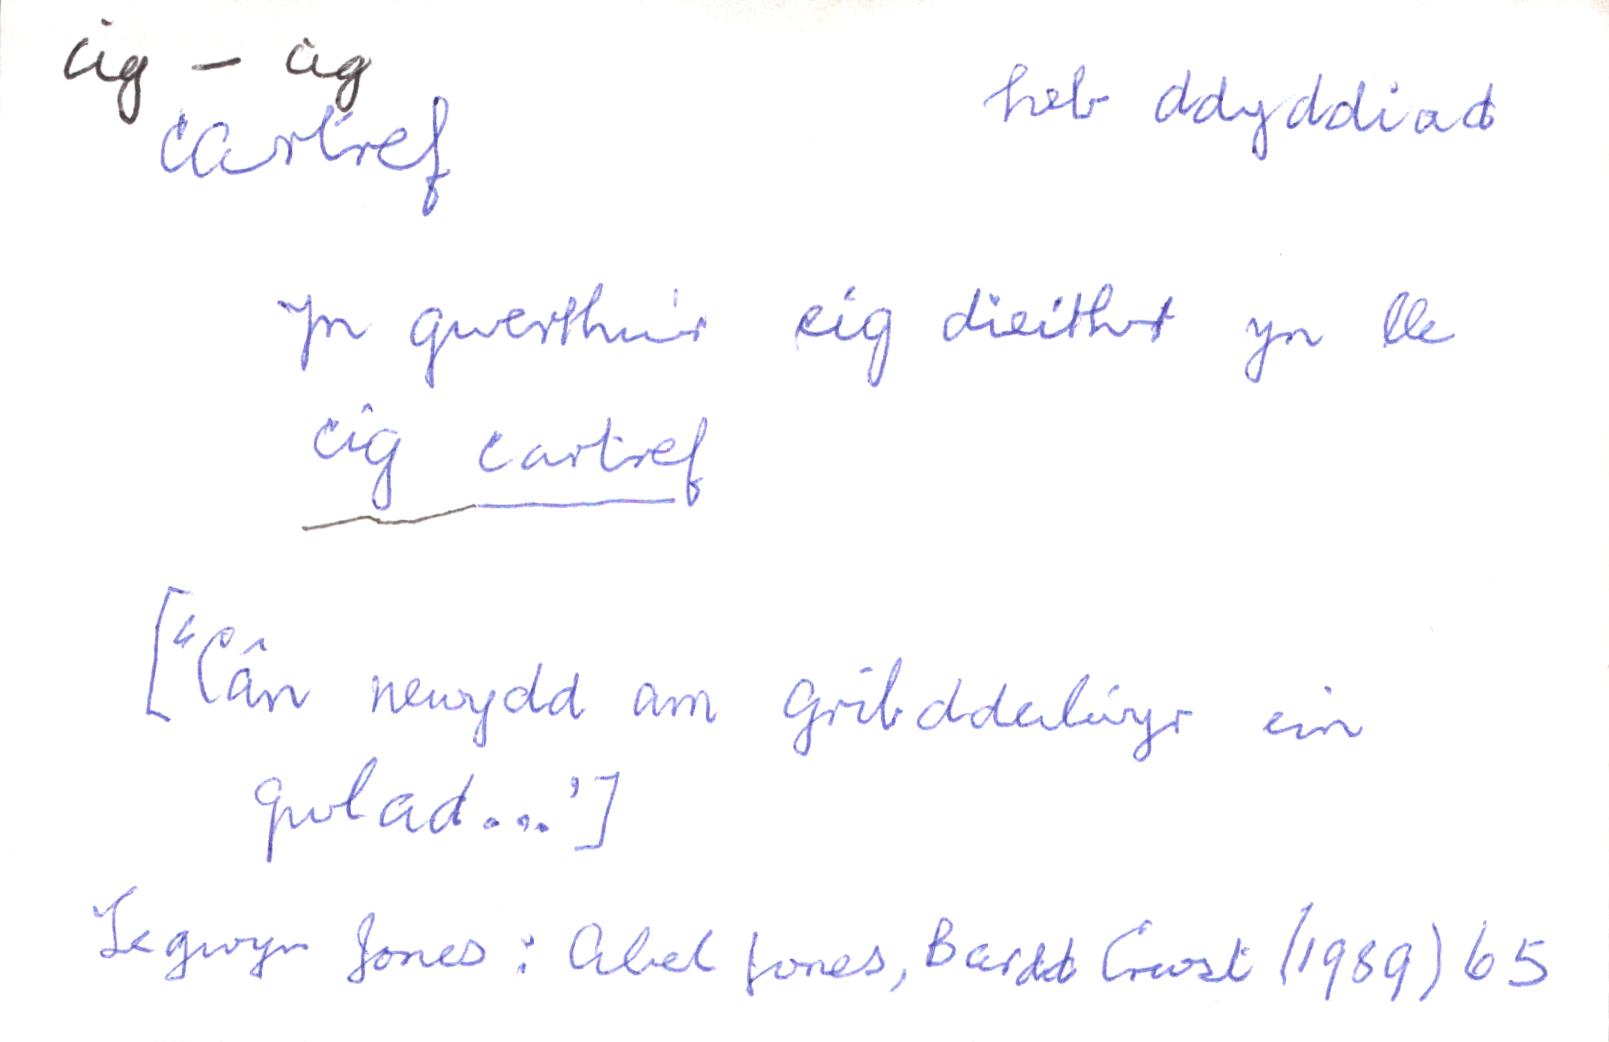 cig – cig
cartref
heb ddyddiad
Yn gwerthu'r cig dieithr yn lle
cig cartref
["Cân newydd am Gribddeilwyr ein
gwlad...']
Tegwyn Jones: Abel Jones, Bardd Crwst (1989) 65